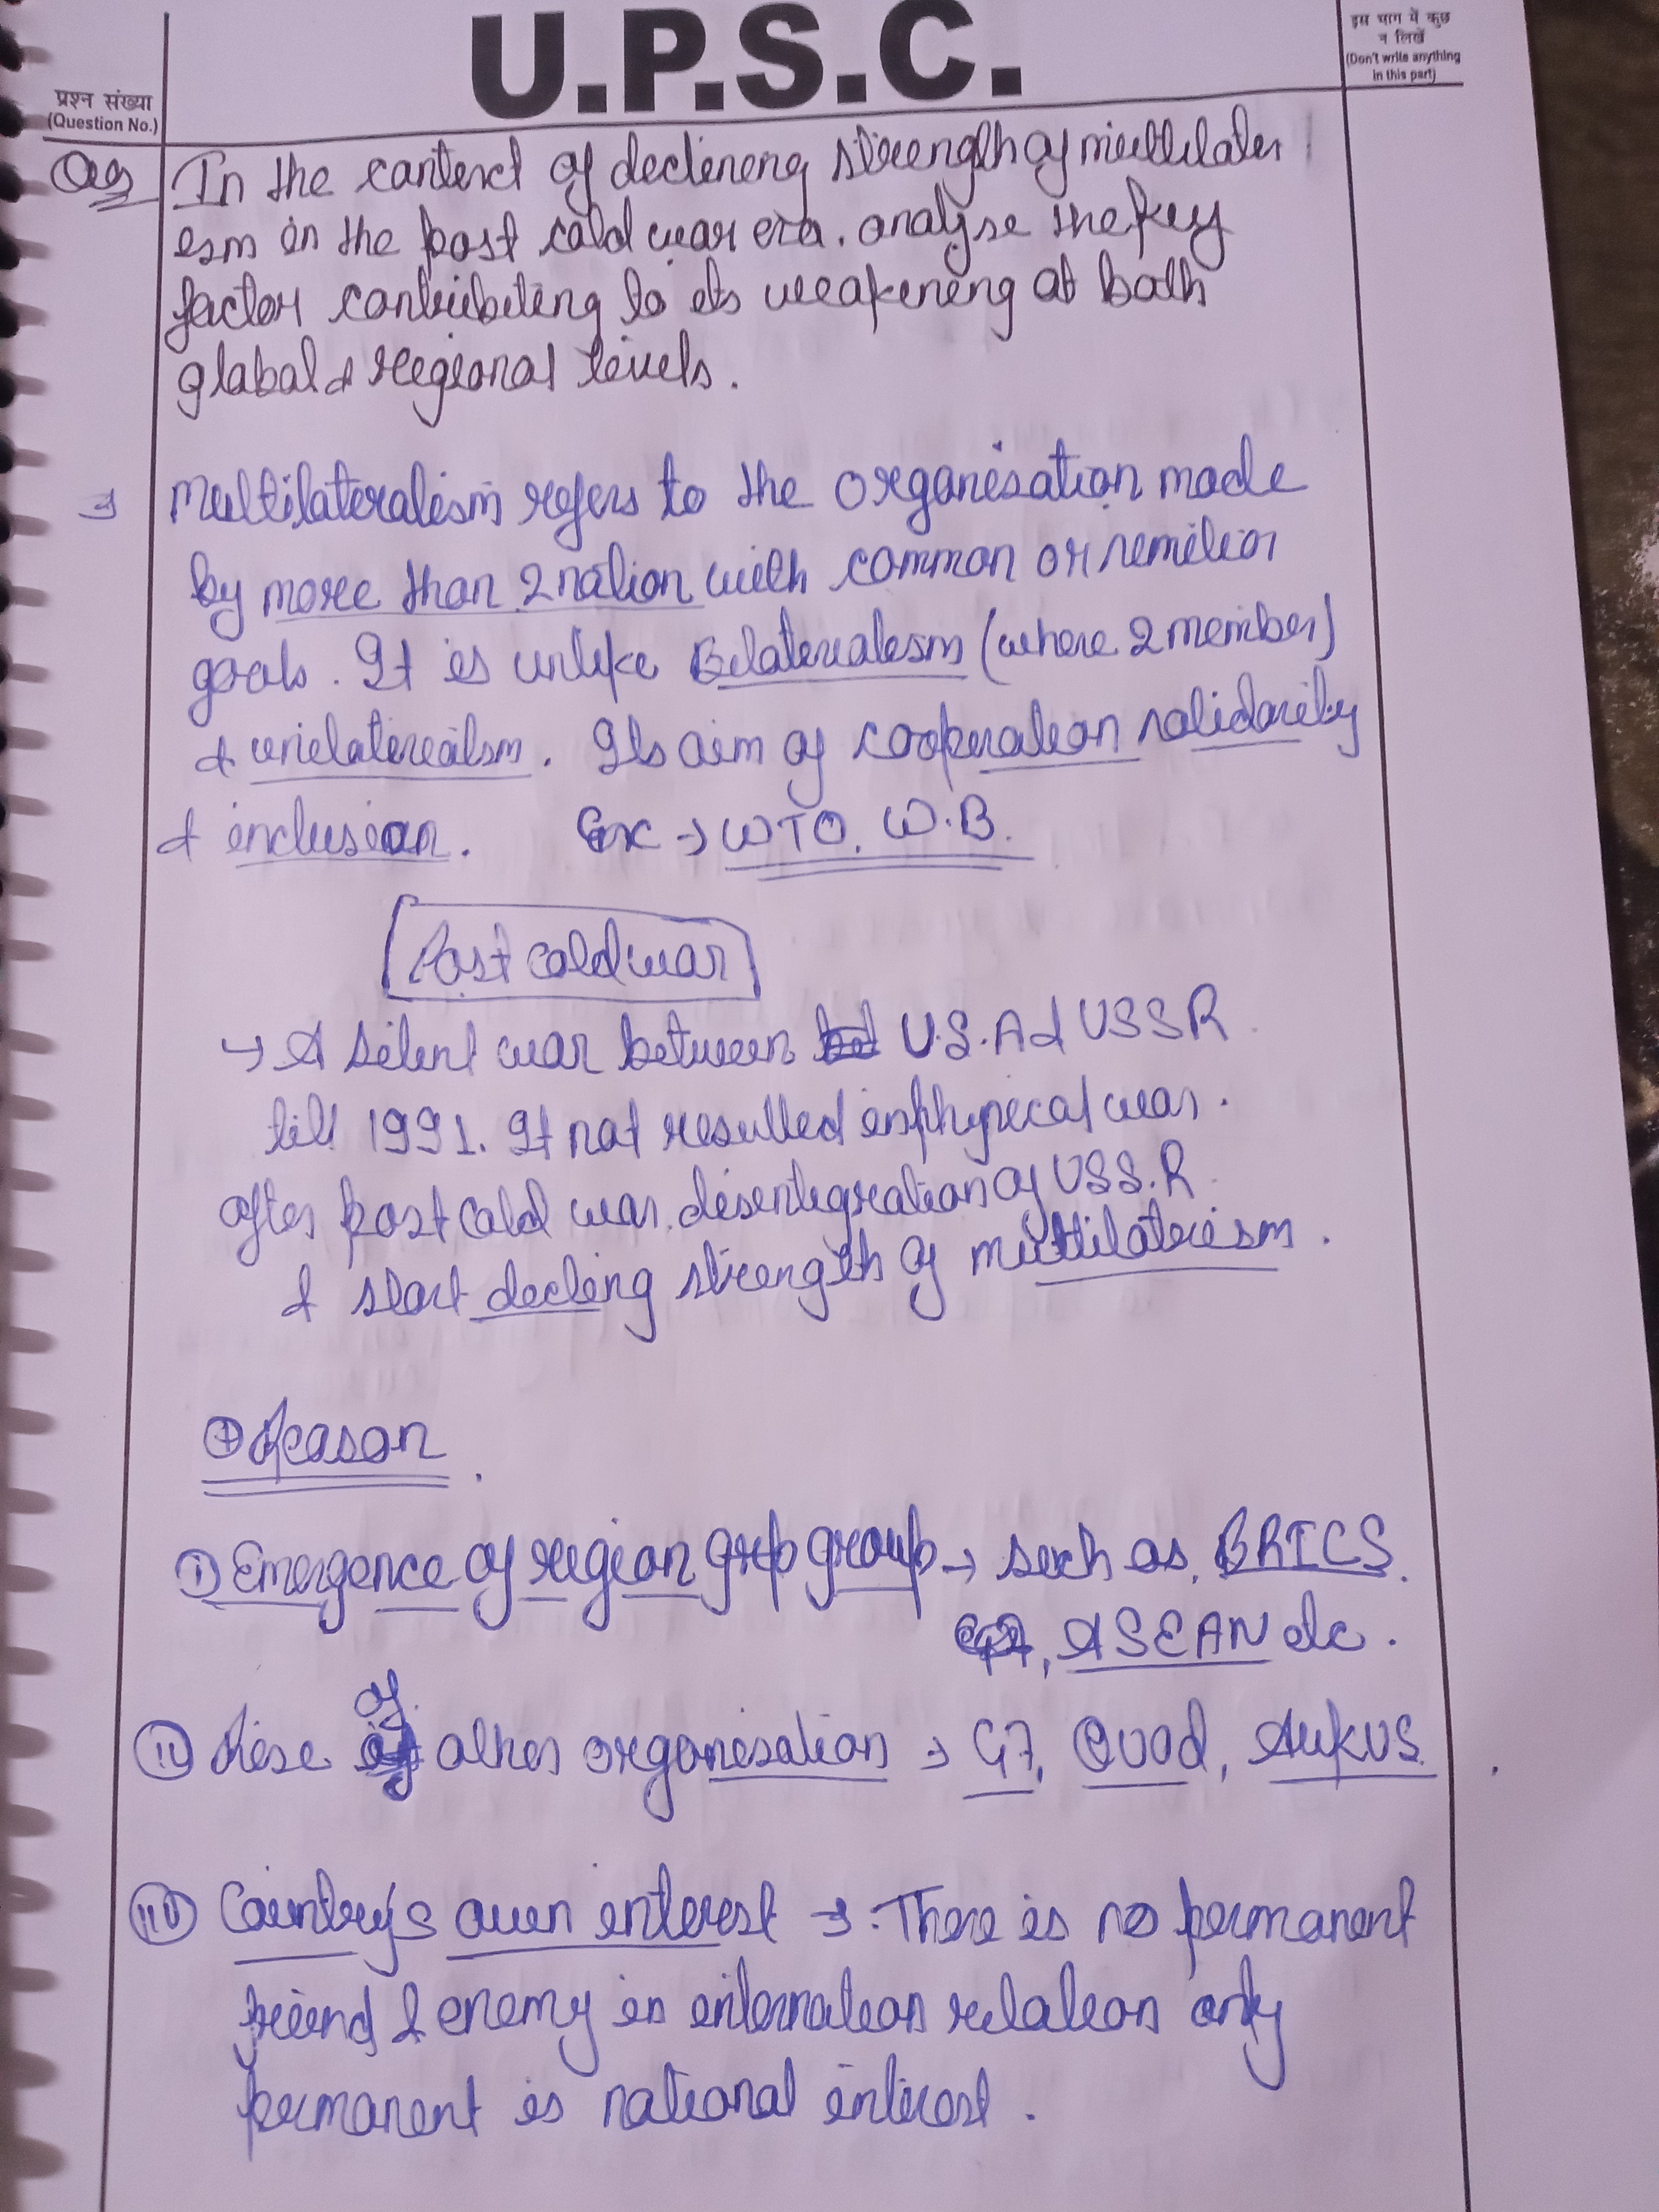 U.P.S.C.
इस भाग में कुछ
न लिखें
(Don't write anything
in this part)
प्रश्न संख्या
(Question No.)
In the context of declineng strength of multilater
ism in the post cold war era. analyse the key
factor contributing to its weakeneng at both
global & regional levels.
→ Multilateralism refers to the organisation made
by more than 2 nation with common or similar
goals. It is unlike Bilateralism (where 2 member)
& unielaterealism. Its aim of cooperation solidarity
& inclusion. Ex → WTO, W.B.
Post cold war
→ A silent war between U.S.A & USSR
till 1991. It not resulted in physical war.
after post cold war, desentegration of USS.R
& start decling strength of multilaterism.
Reason
(i) Emergence of region group → such as, BRICS.
, ASEAN etc.
(ii) Rise of other organisation → G7, Quad, AUKUS.
(iii) Country's own interest → There is no permanent
friend & enemy in internation relation only
permanent is national interest.